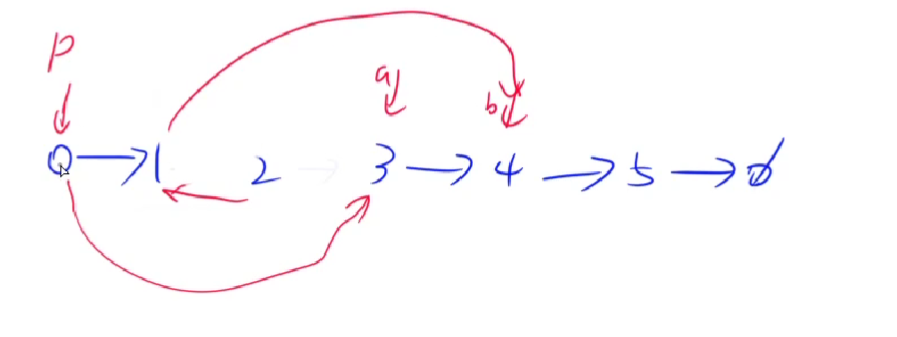 p
a
b
0 → 1 2 → 3 → 4 → 5 → ø